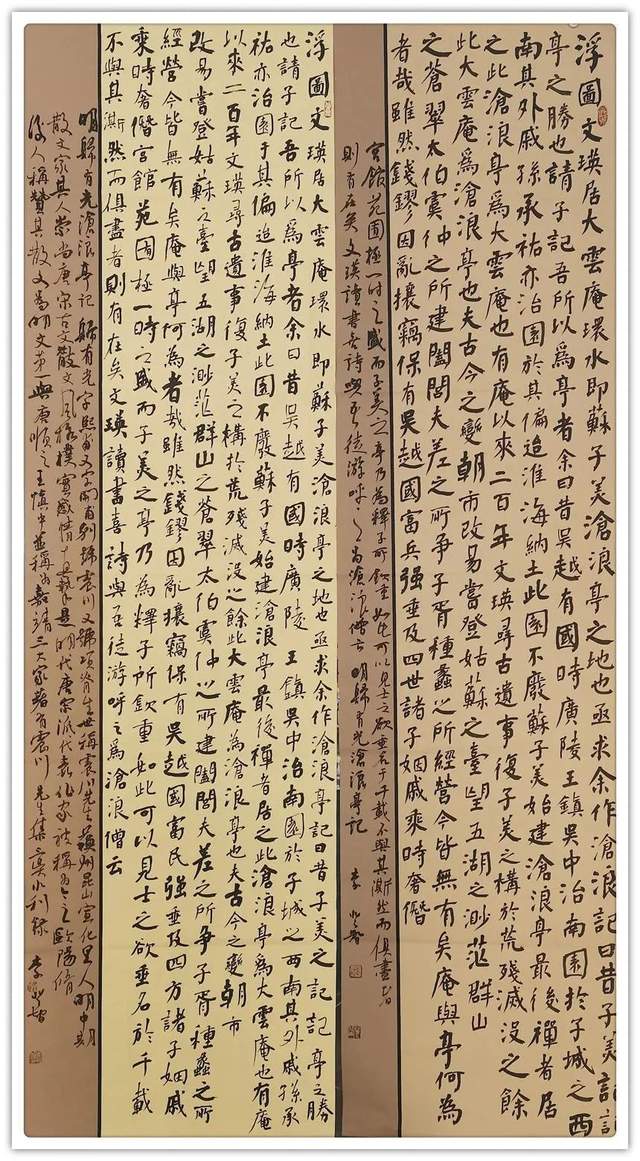 浮圖文瑛居大雲庵環水即蘇子美滄浪亭之地也亟求余作滄浪記曰昔子美記記
亭之勝也請子記吾所以爲亭者余曰昔吳越有國時廣陵王鎮吳中治南園於子城之西
南其外戚孫承祐亦治園於其偏迨淮海納土此園不廢蘇子美始建滄浪亭最後禪者居
之此滄浪亭爲大雲庵也有庵以來二百年文瑛尋古遺事復子美之構於荒殘滅沒之餘
此大雲庵爲滄浪亭也夫古今之變朝市改易嘗登姑蘇之臺望五湖之渺茫群山
之蒼翠太伯虞仲之所建闔閭夫差之所爭子胥種蠡之所經營今皆無有矣庵與亭何為
者哉雖然錢鏐因亂攘竊保有吳越國富兵強垂及四世諸子姻戚乘時奢僭
宮館苑囿極一時之盛而子美之亭乃爲釋子所欽重如此可以見士之欲垂名于千載不與其澌然而俱盡者
則有在矣文瑛讀書喜詩與吾徒游呼之為滄浪僧云 明歸有光滄浪亭記
浮圖文瑛居大雲庵環水即蘇子美滄浪亭之地也亟求余作滄浪亭記曰昔子美之記記亭之勝
也請子記吾所以爲亭者余曰昔吳越有國時廣陵王鎮吳中治南園於子城之西南其外戚孫承
祐亦治園于其偏迨淮海納土此園不廢蘇子美始建滄浪亭最後禪者居之此滄浪亭爲大雲庵也有庵
以來二百年文瑛尋古遺事復子美之構於荒殘滅沒之餘此大雲庵為滄浪亭也夫古今之變朝市
改易嘗登姑蘇之臺望五湖之渺茫群山之蒼翠太伯虞仲之所建闔閭夫差之所爭子胥種蠡之所
經營今皆無有矣庵與亭何為者哉雖然錢鏐因亂攘竊保有吳越國富民強垂及四方諸子姻戚
乘時奢僭宮館苑囿極一時之盛而子美之亭乃為釋子所欽重如此可以見士之欲垂名於千載
不與其澌然而俱盡者則有在矣文瑛讀書喜詩與吾徒游呼之爲滄浪僧云
明歸有光滄浪亭記 歸有光字熙甫又字開甫別號震川又號項脊生世稱震川先生蘇州昆山宣化里人明中期
散文家其人崇尚唐宋古文散文風格樸實感情真摯是明代唐宋派代表作家被稱為今之歐陽脩
後人稱贊其散文為明文第一與唐順之王慎中並稱為嘉靖三大家著有震川先生集三吳水利錄